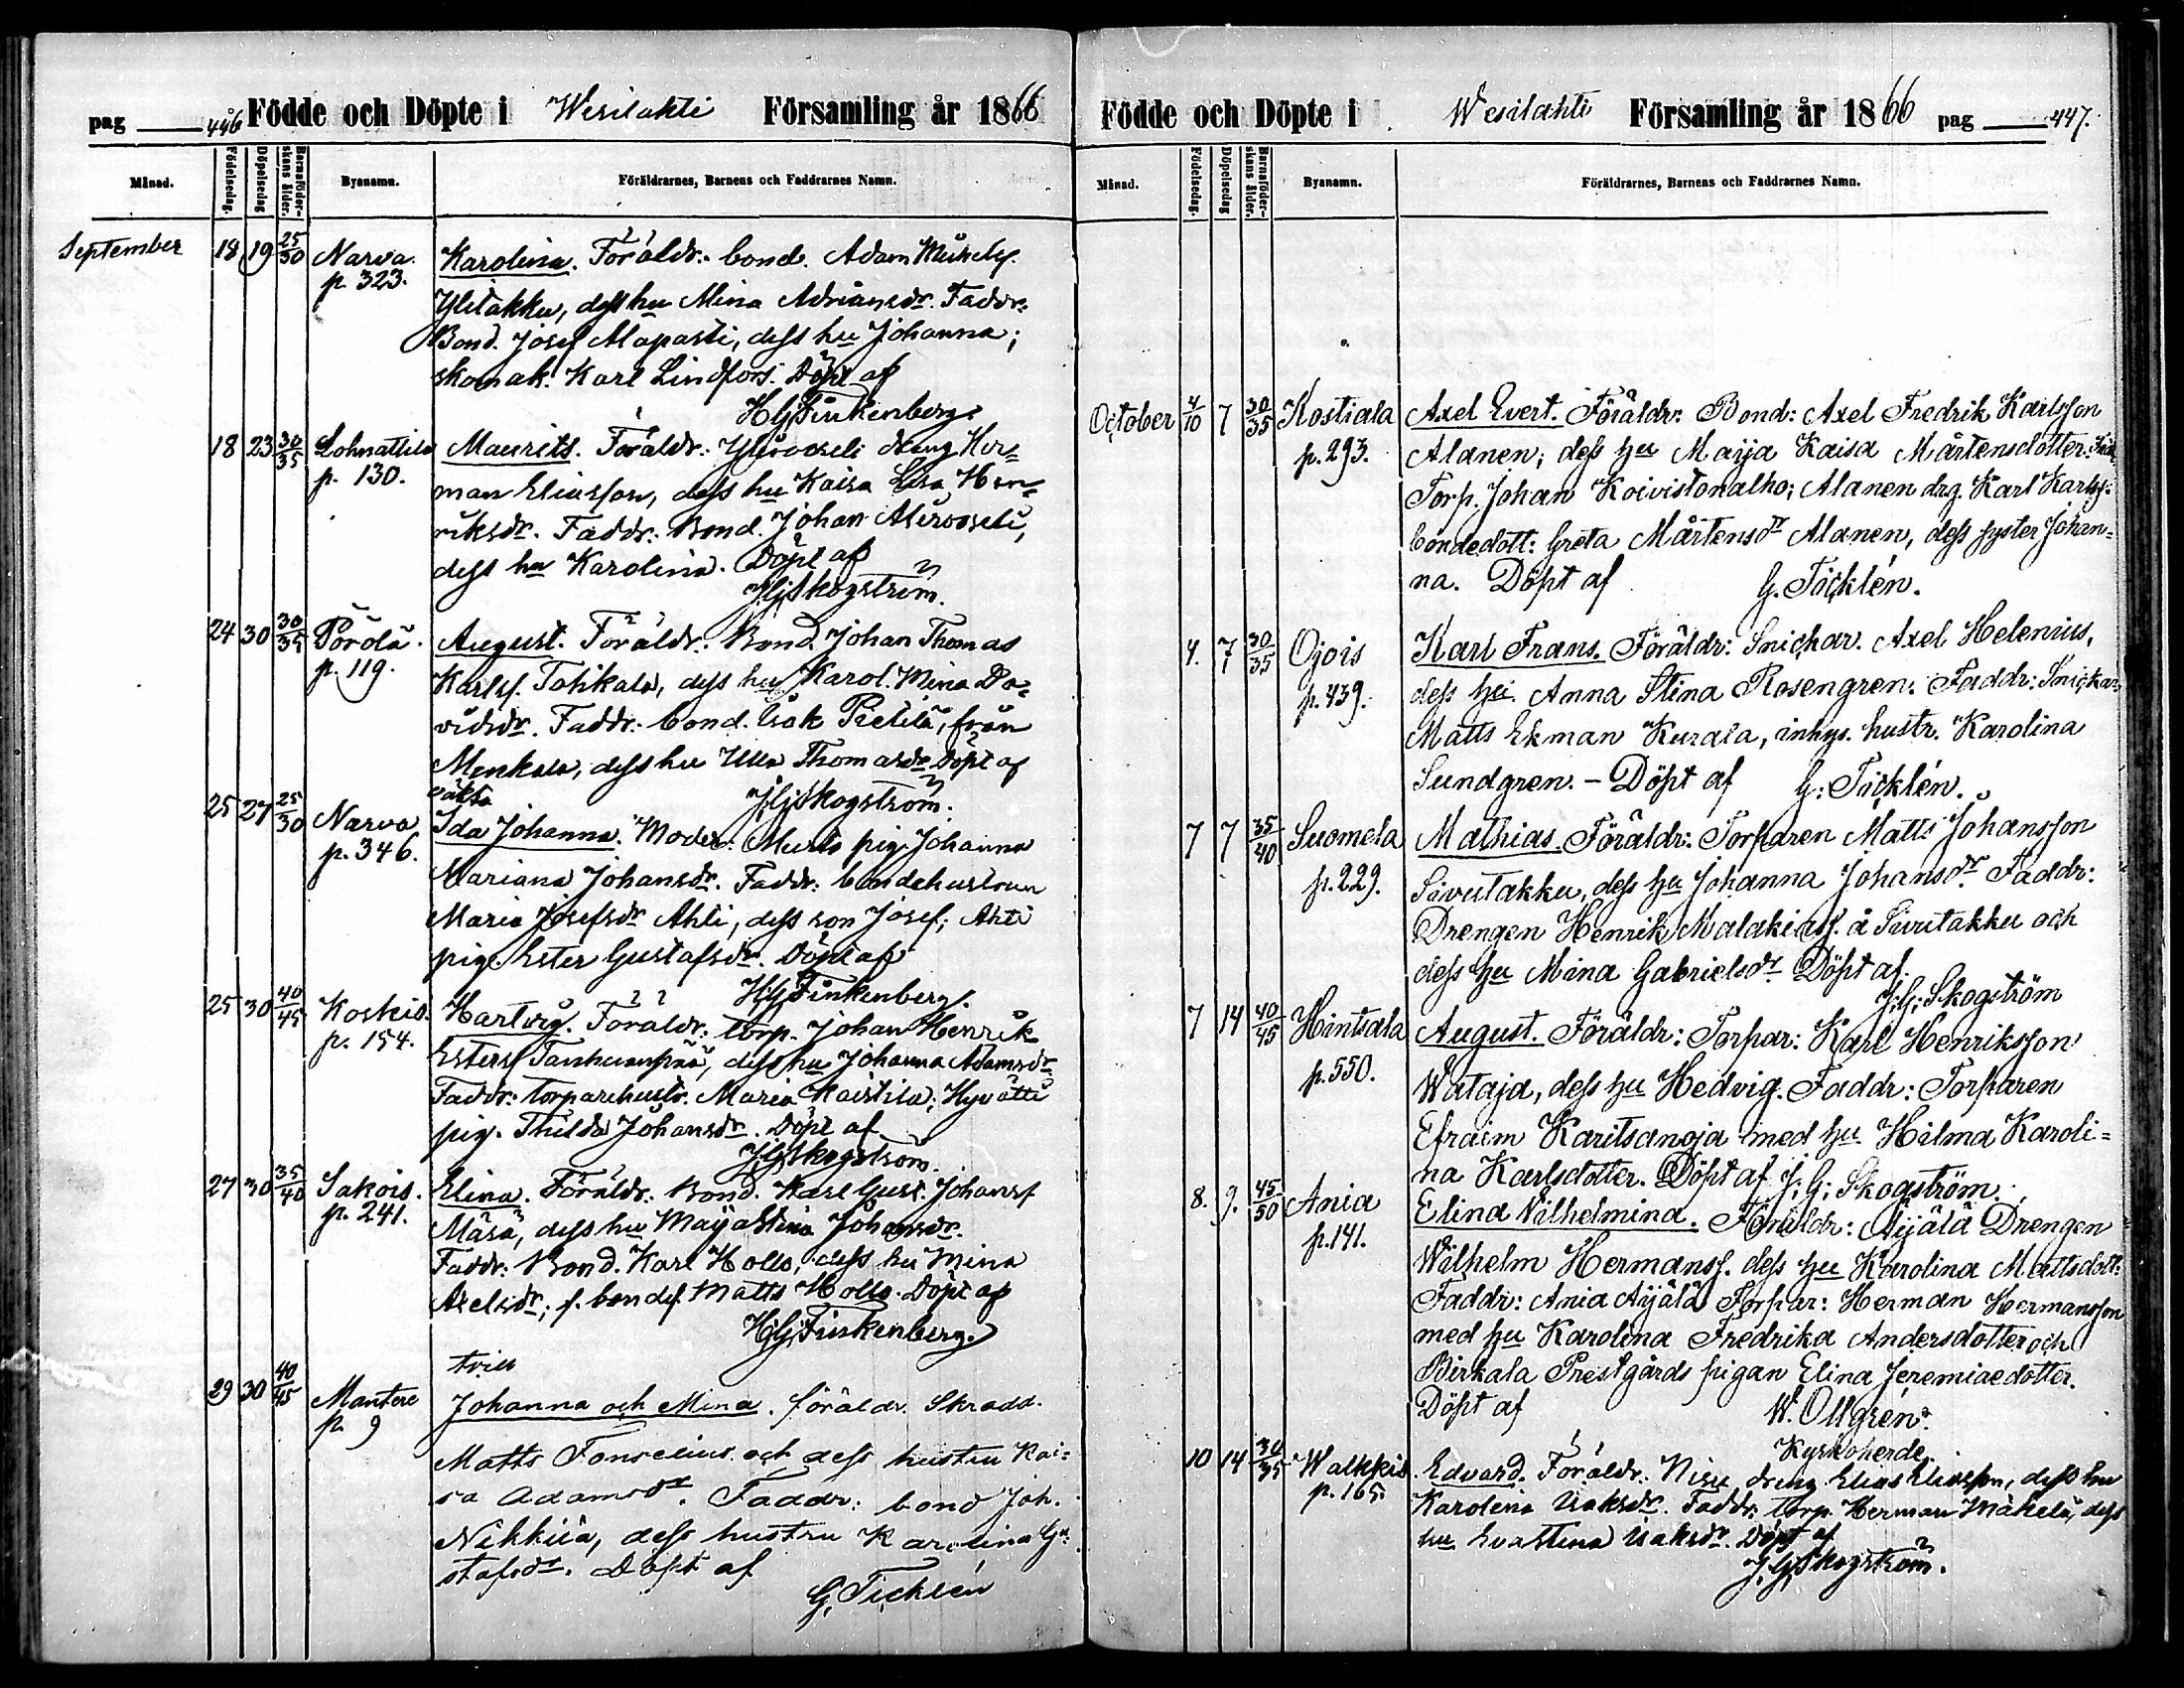 pag 446 Födde och Döpte i Wesilahti Församling år 1866
Månad. Födelsedag. Döpelsedag Barnaföderskans ålder. Bynamn. Föräldrarnes, Barnens och Faddrarnes Namn.
September 18 19 25/30 Narva. Karolina. Föräldr: bond. Adam Michelsf.
p. 323. Ylitakku, dess hu Mina Adriansdr. Faddr:
Bond. Josef Alapasti, dess hu Johanna;
skomak. Karl Lindfors. Döpt af
HGFinkenberg.
18 23 30/35 Lohnattila Maurits. Föräldr: Ylirooseli dräng Her=
p. 130. man Eliasson, dess hu Kaisa Lisa Hen=
riksdr. Faddr: Bond. Johan Alirooseli,
dess hu Karolina. Döpt af
JGSkogström.
24 30 30/35 Pörölä. August. Föräldr. Bond. Johan Thomas
p. 119. Karlsf. Tohkala, dess hu Karol. Mina Da=
vidsdr. Faddr: bond. Isak Pietilä, från
Menkala, dess hu Ulla Thomasdr. Döpt af
JGSkogström.
oäkta
25 27 25/30 Narva Ida Johanna. Moder: Murto pig. Johanna
p. 346. Mariana Johansdr. Faddr: bondehustrun
Maria Josefsdr Ahti, dess son Josef; Ahti
pig. Ester Gustafsdr. Döpt af
HGFinkenberg.
25 30 40/45 Koskis. Hartvig. Föräldr: torp. Johan Henrik
p. 154. Estersf Tanhuanpää, dess hu Johanna Adamsdr
Faddr: torparehustr. Maria Kaistila; Hyvätti
pig. Thilda Johansdr. Döpt af
JGSkogström.
27 30 35/40 Sakois. Elina. Föräldr. Bond. Karl Gust. Johansf
p. 241. Mäsä, dess hu Maija Stina Johansdr.
Faddr: Bond. Karl Hollo, dess hu Mina
Axelsdr; f. bondef. Matts Hollo. Döpt af
HGFinkenberg.
tvill
29 30 40/45 Mantere Johanna och Mina. föräldr. Skradd.
p. 9
Matts Fonselius och dess hustru Kai=
sa Adamsdr. Faddr: bond Joh.
Nikkilä, dess hustru Karolina Gu=
stafsdr. Döpt af
G. Ticklén
Födde och Döpte i Wesilahti Församling år 1866 pag 447.
Månad. Födelsedag. Döpelsedag Barnaföderskans ålder. Bynamn. Föräldrarnes, Barnens och Faddrarnes Namn.
October 4/10 7 30/35 Kostiala Axel Evert. Föräldr: Bond: Axel Fredrik Karlsson
p. 293. Alanen; dess hu Maija Kaisa Mårtensdotter.
Torp. Johan Koivistonalho; Alanen drg. Karl Karlsf.
bondedott: Greta Mårtensdr Alanen, dess syster Johan=
na. Döpt af G. Ticklén.
4. 7 30/35 Ojois Karl Frans. Föräldr: Snickar. Axel Helenius,
p. 439. dess hu Anna Stina Rosengren. Faddr: Snickar.
Matts Ekman Kurala, inhys. hustr. Karolina
Sundgren. – Döpt af G. Ticklén.
7 7 35/40 Suomela Mathias. Föräldr: Torparen Matts Johansson
p. 229. Sivutakku, dess hu Johanna Johansdr. Faddr:
Drengen Henrik Malakiasf. å Sivutakku och
dess hu Mina Gabrielsdr Döpt af.
J. G. Skogström
7 14 40/45 Hintsala August. Föräldr: Torpar: Karl Henriksson
p. 550. Wataja, dess hu Hedvig. Faddr: Torparen
Efraim Karitsanoja med hu Hilma Karoli=
na Karlsdotter. Döpt af J. G. Skogström.
8. 9. 45/50 Ania Elina Vilhelmina. Föräldr: Äijälä Drengen
p. 141. Wilhelm Hermansf. dess hu Karolina Mattsdott:
Faddr: Ania Äijälä Torpar: Herman Hermansson
med hu Karolina Fredrika Andersdotter och
Birkala Prestgårds pigan Elina Jeremiaedotter.
Döpt af W. Ollgrén.
Kyrkoherde.
10 14 30/35 Walkkis Edvard. Föräldr: Nisu dreng Elias Eliasson, dess hu
p. 165. Karolina Isaksdr. Faddr: torp. Herman Mäkelä, dess
hu Eva Stina Isaksdr. Döpt af
J. GSkogström.